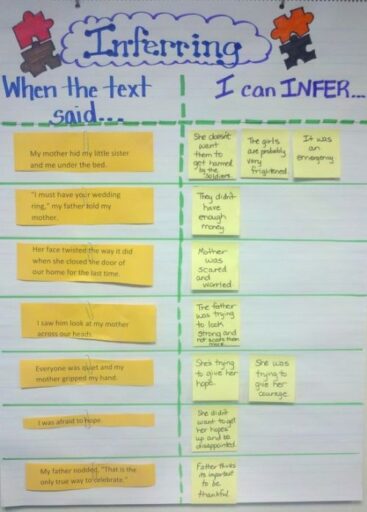 Inferring
When the text
said...
I can INFER...
My mother hid my little sister
and me under the bed.
She doesn't
want
them to
get harmed
by the
soldiers.
The girls
are probably
very
frightened.
It was
an
emergency
"I must have your wedding
ring," my father told my
mother.
They didn't
have
enough
money
Her face twisted the way it did
when she closed the door of
our home for the last time.
Mother
was
scared
and
worried
I saw him look at my mother
across our heads.
The father
was trying
to look
strong and
not scare them
Everyone was quiet and my
mother gripped my hand.
She's trying
to give her
hope.
She was
trying
to
give her
courage.
I was afraid to hope.
She didn't
want to get
her hopes
up and be
disappointed.
My father nodded, "That is the
only true way to celebrate."
Father thinks
its important
to be
thankful.